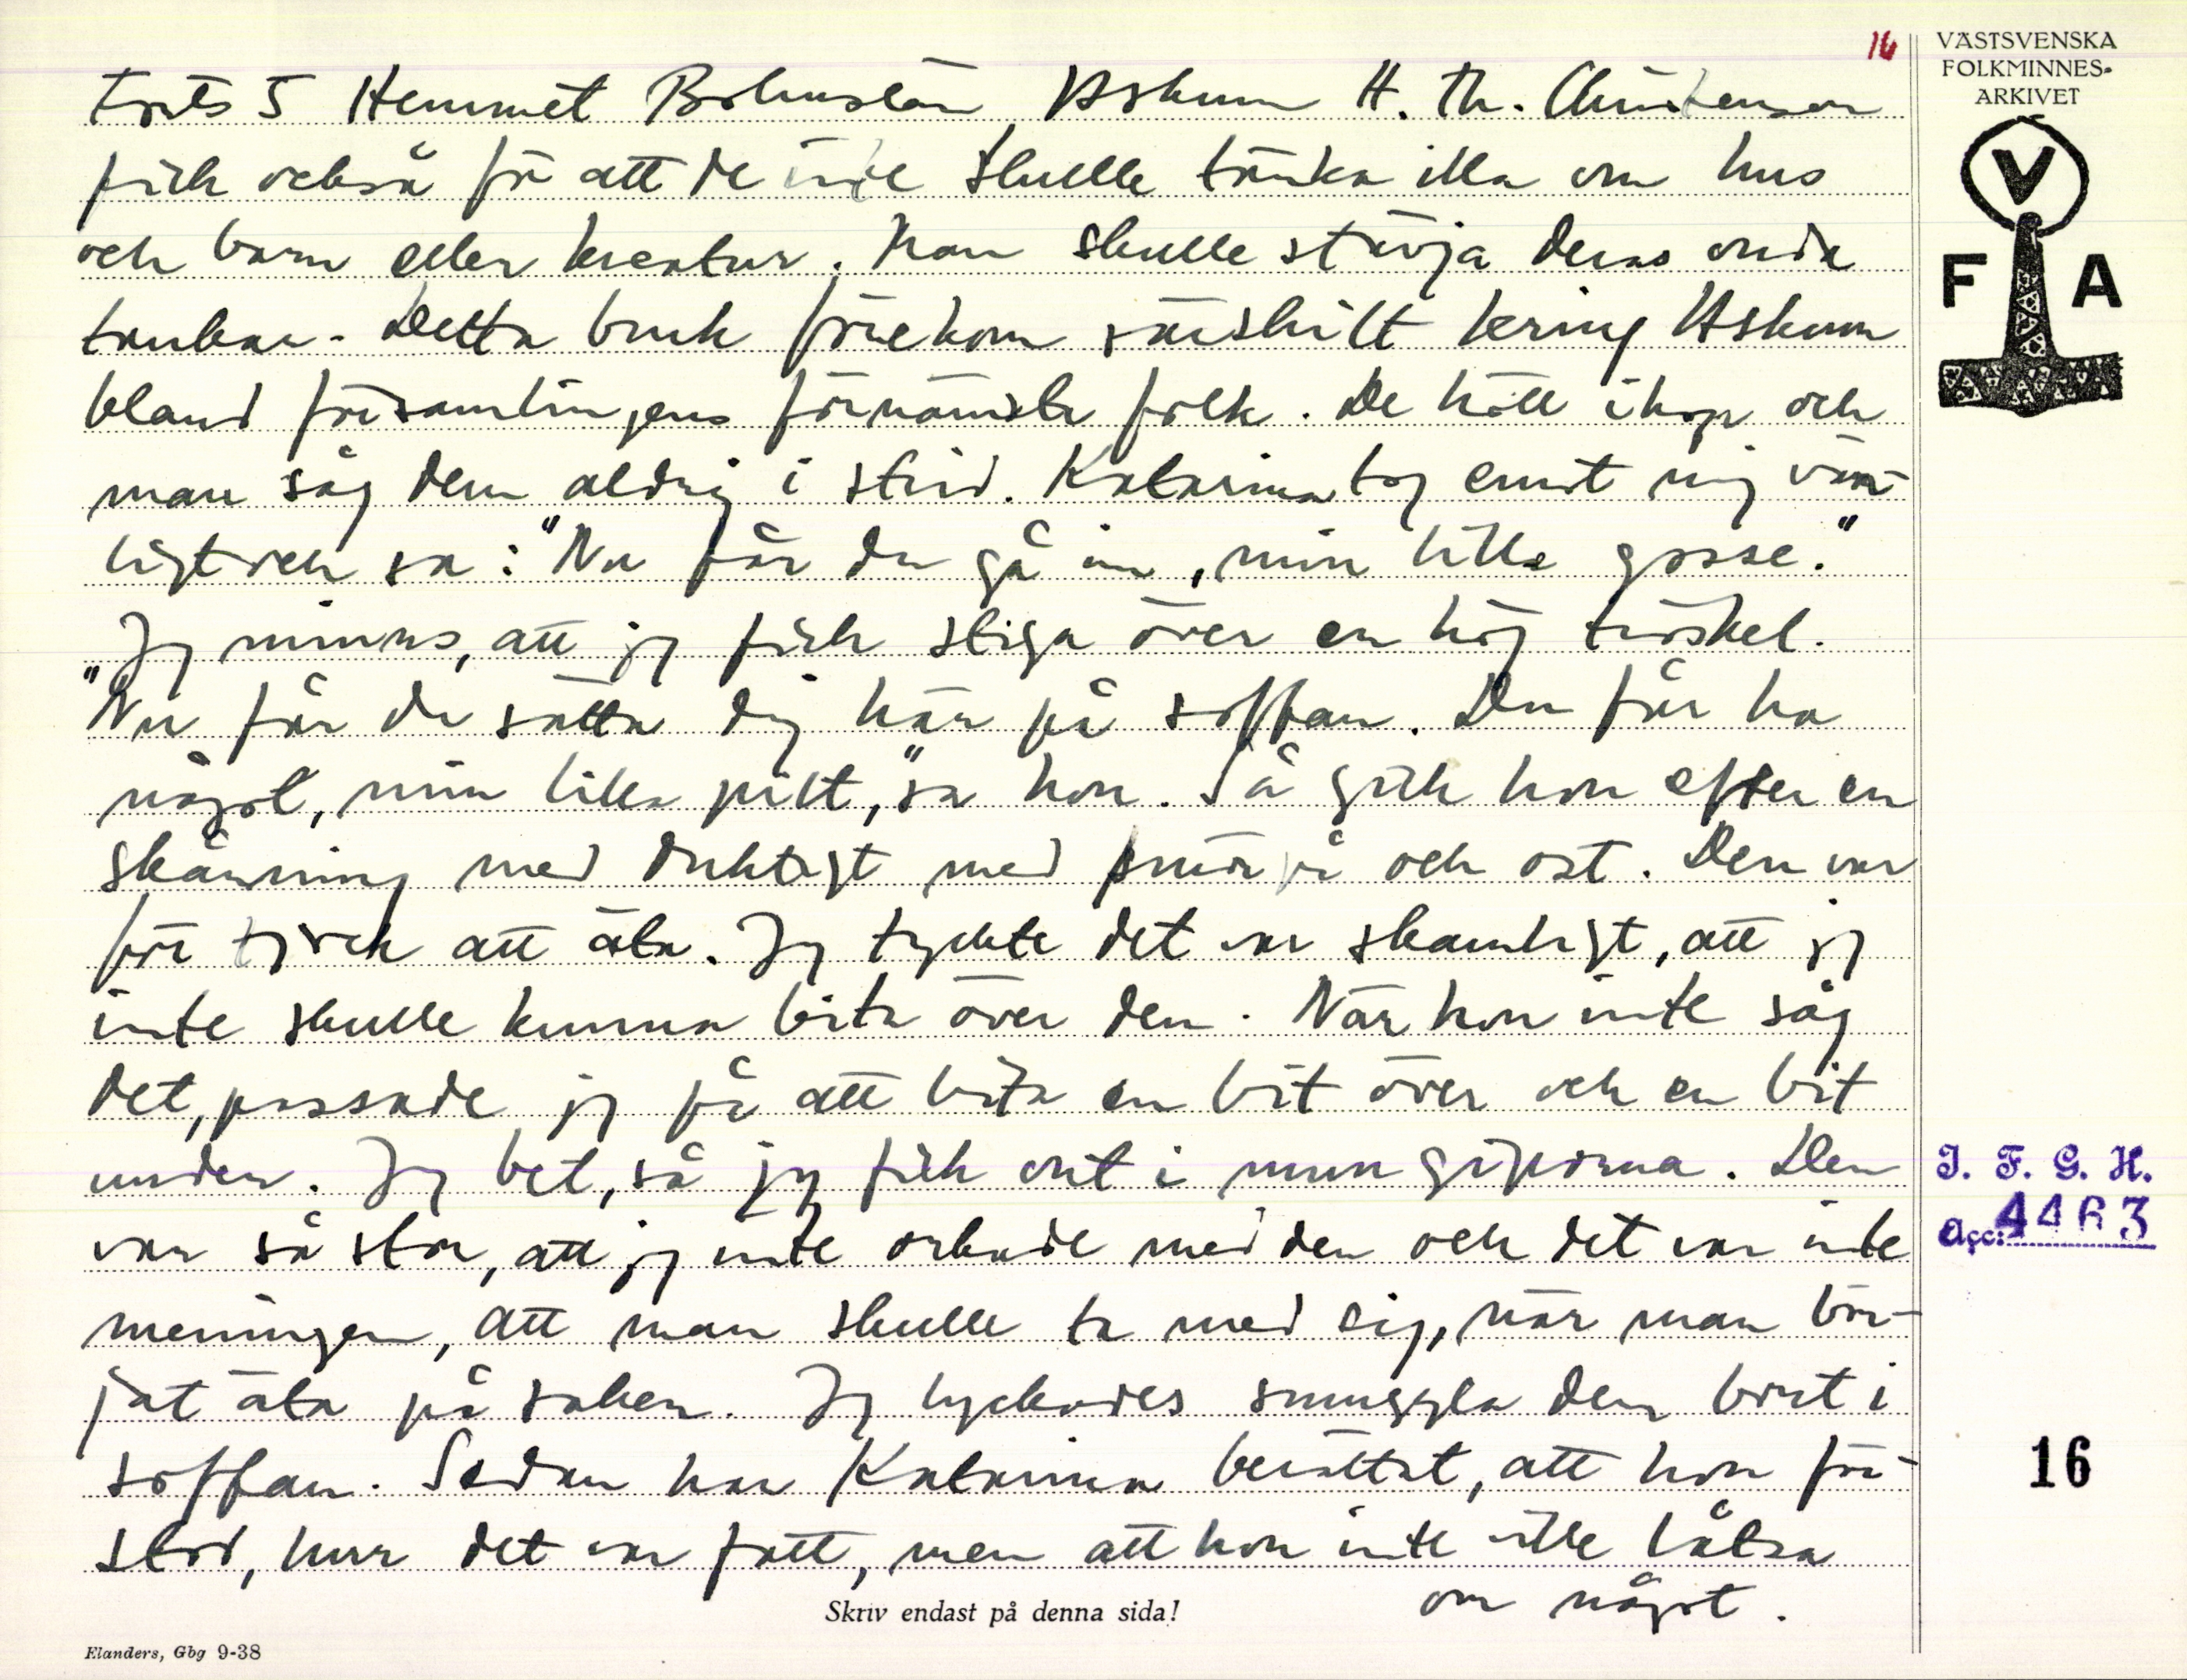 16
VÄSTSVENSKA
FOLKMINNES-
ARKIVET
V
F A
Forts 5 Hemmet Bohuslän Askum H. Th. Christensson
fick också för att de inte skulle tänka illa om hus
och barn eller kreatur. Man skulle stävja deras onda
tankar. Detta bruk förekom särskilt kring Askum
bland församlingens förnämsta folk. De höll ihop och
man såg dem aldrig i strid. Katarina tog emot mig vän-
ligt och sa: "Nu får du gå in, min lille gosse."
Jag minns, att jag fick stiga över en hög tröskel.
"Nu får du sätta dig här på soffan. Du får ha
något, min lilla pilt," sa hon. Så gick hon efter en
skånning med duktigt med smör på och ost. Den var
för tjock att äta. Jag tyckte det var skamligt, att jag
inte skulle kunna bita över den. När hon inte såg
det, passade jag på att bita en bit över och en bit
under. Jag bet, så jag fick ont i mungiporna. Den
var så stor, att jag inte orkade med den och det var inte
meningen, att man skulle ta med sig, när man bör-
jat äta på saken. Jag lyckades smuggla den bort i
soffan. Sedan har Katarina berättat, att hon för-
stod, hur det var fatt, men att hon inte ville låtsa
om något.
I. F. G. H.
Acc: 4463
16
Skriv endast på denna sida!
Elanders, Gbg 9-38